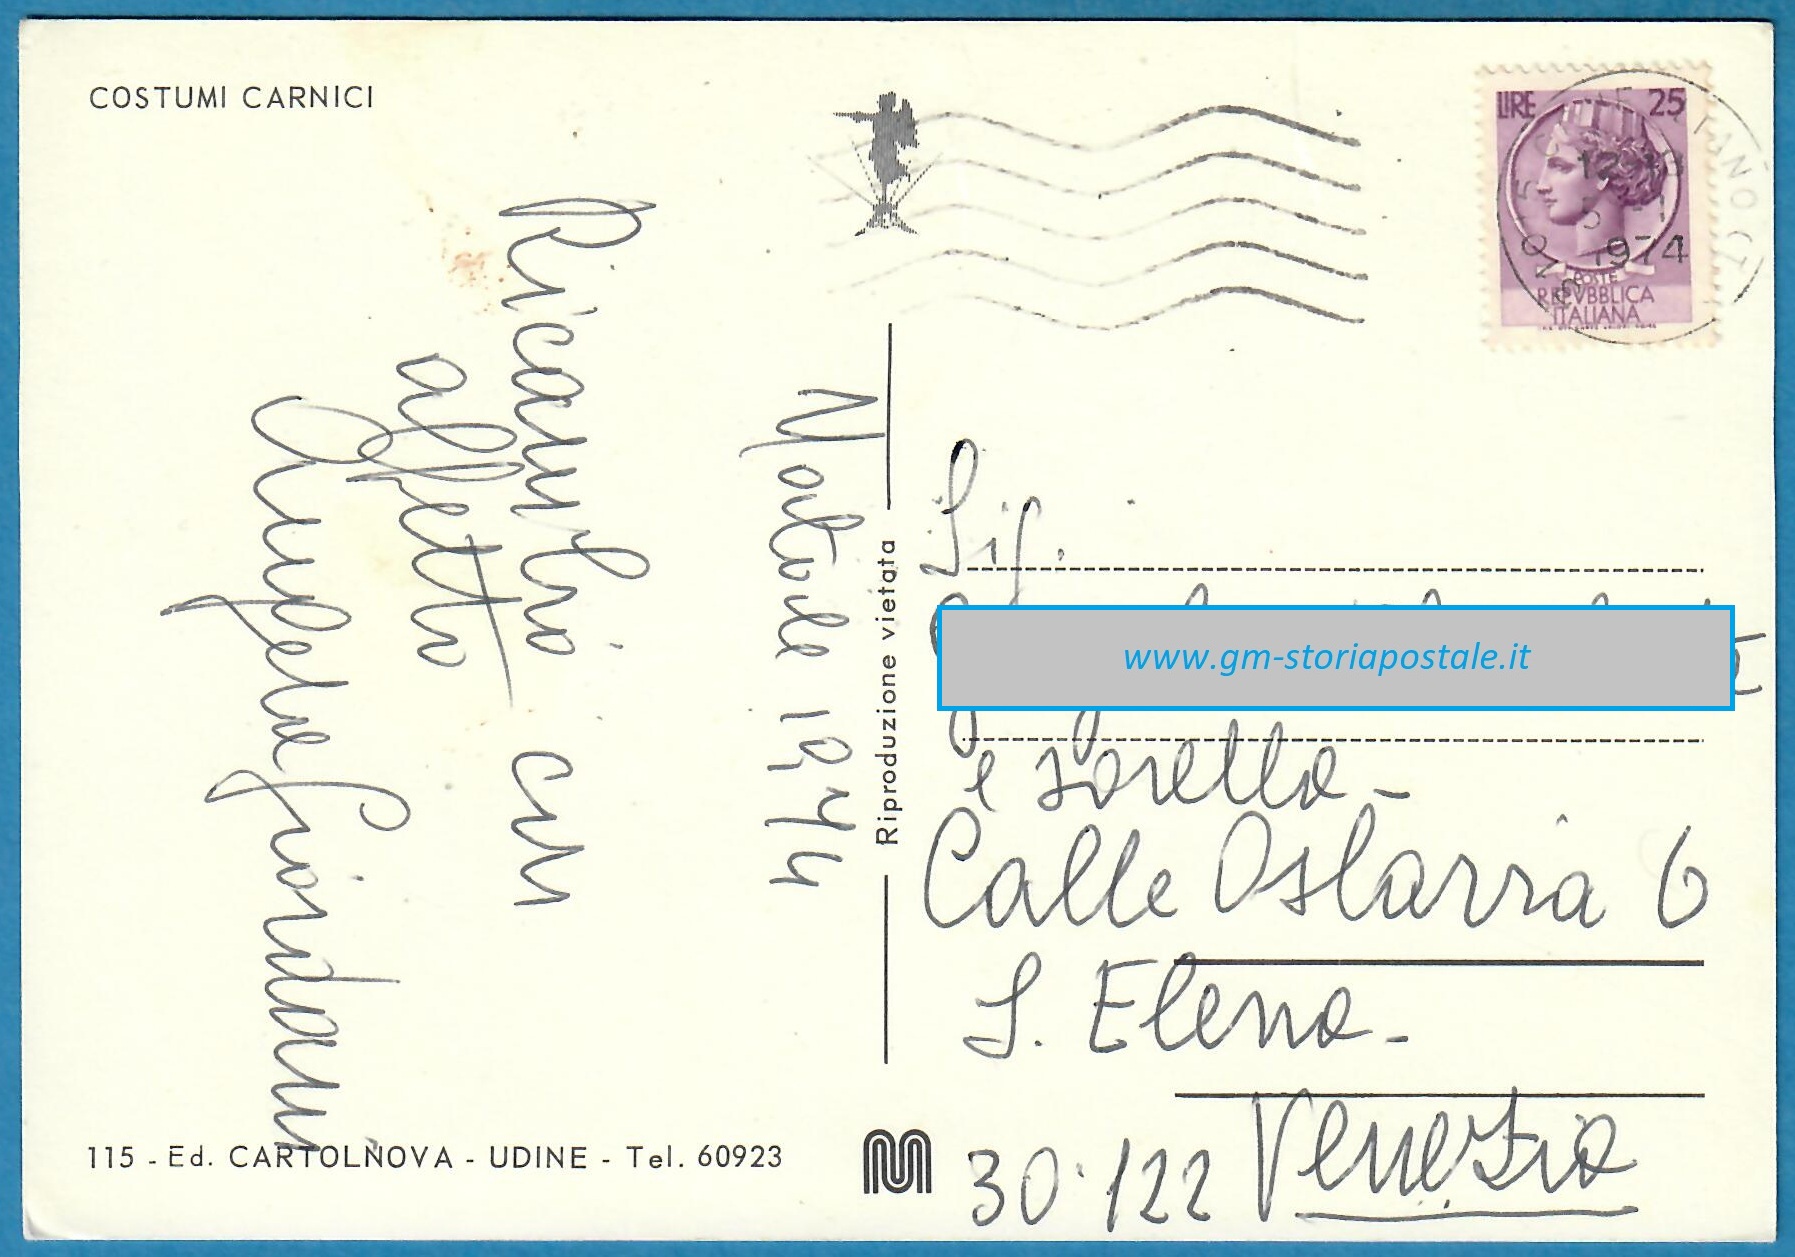 COSTUMI CARNICI
LIRE 25
12
1974
POSTE
REPVBBLICA
ITALIANA
Natale 1974
Ricambio con
affetto
Angela Giordani
Riproduzione vietata
Sig.
www.gm-storiapostale.it
e sorella -
Calle Oslavia 6
S. Elena -
30122 Venezia
115 - Ed. CARTOLNOVA - UDINE - Tel. 60923